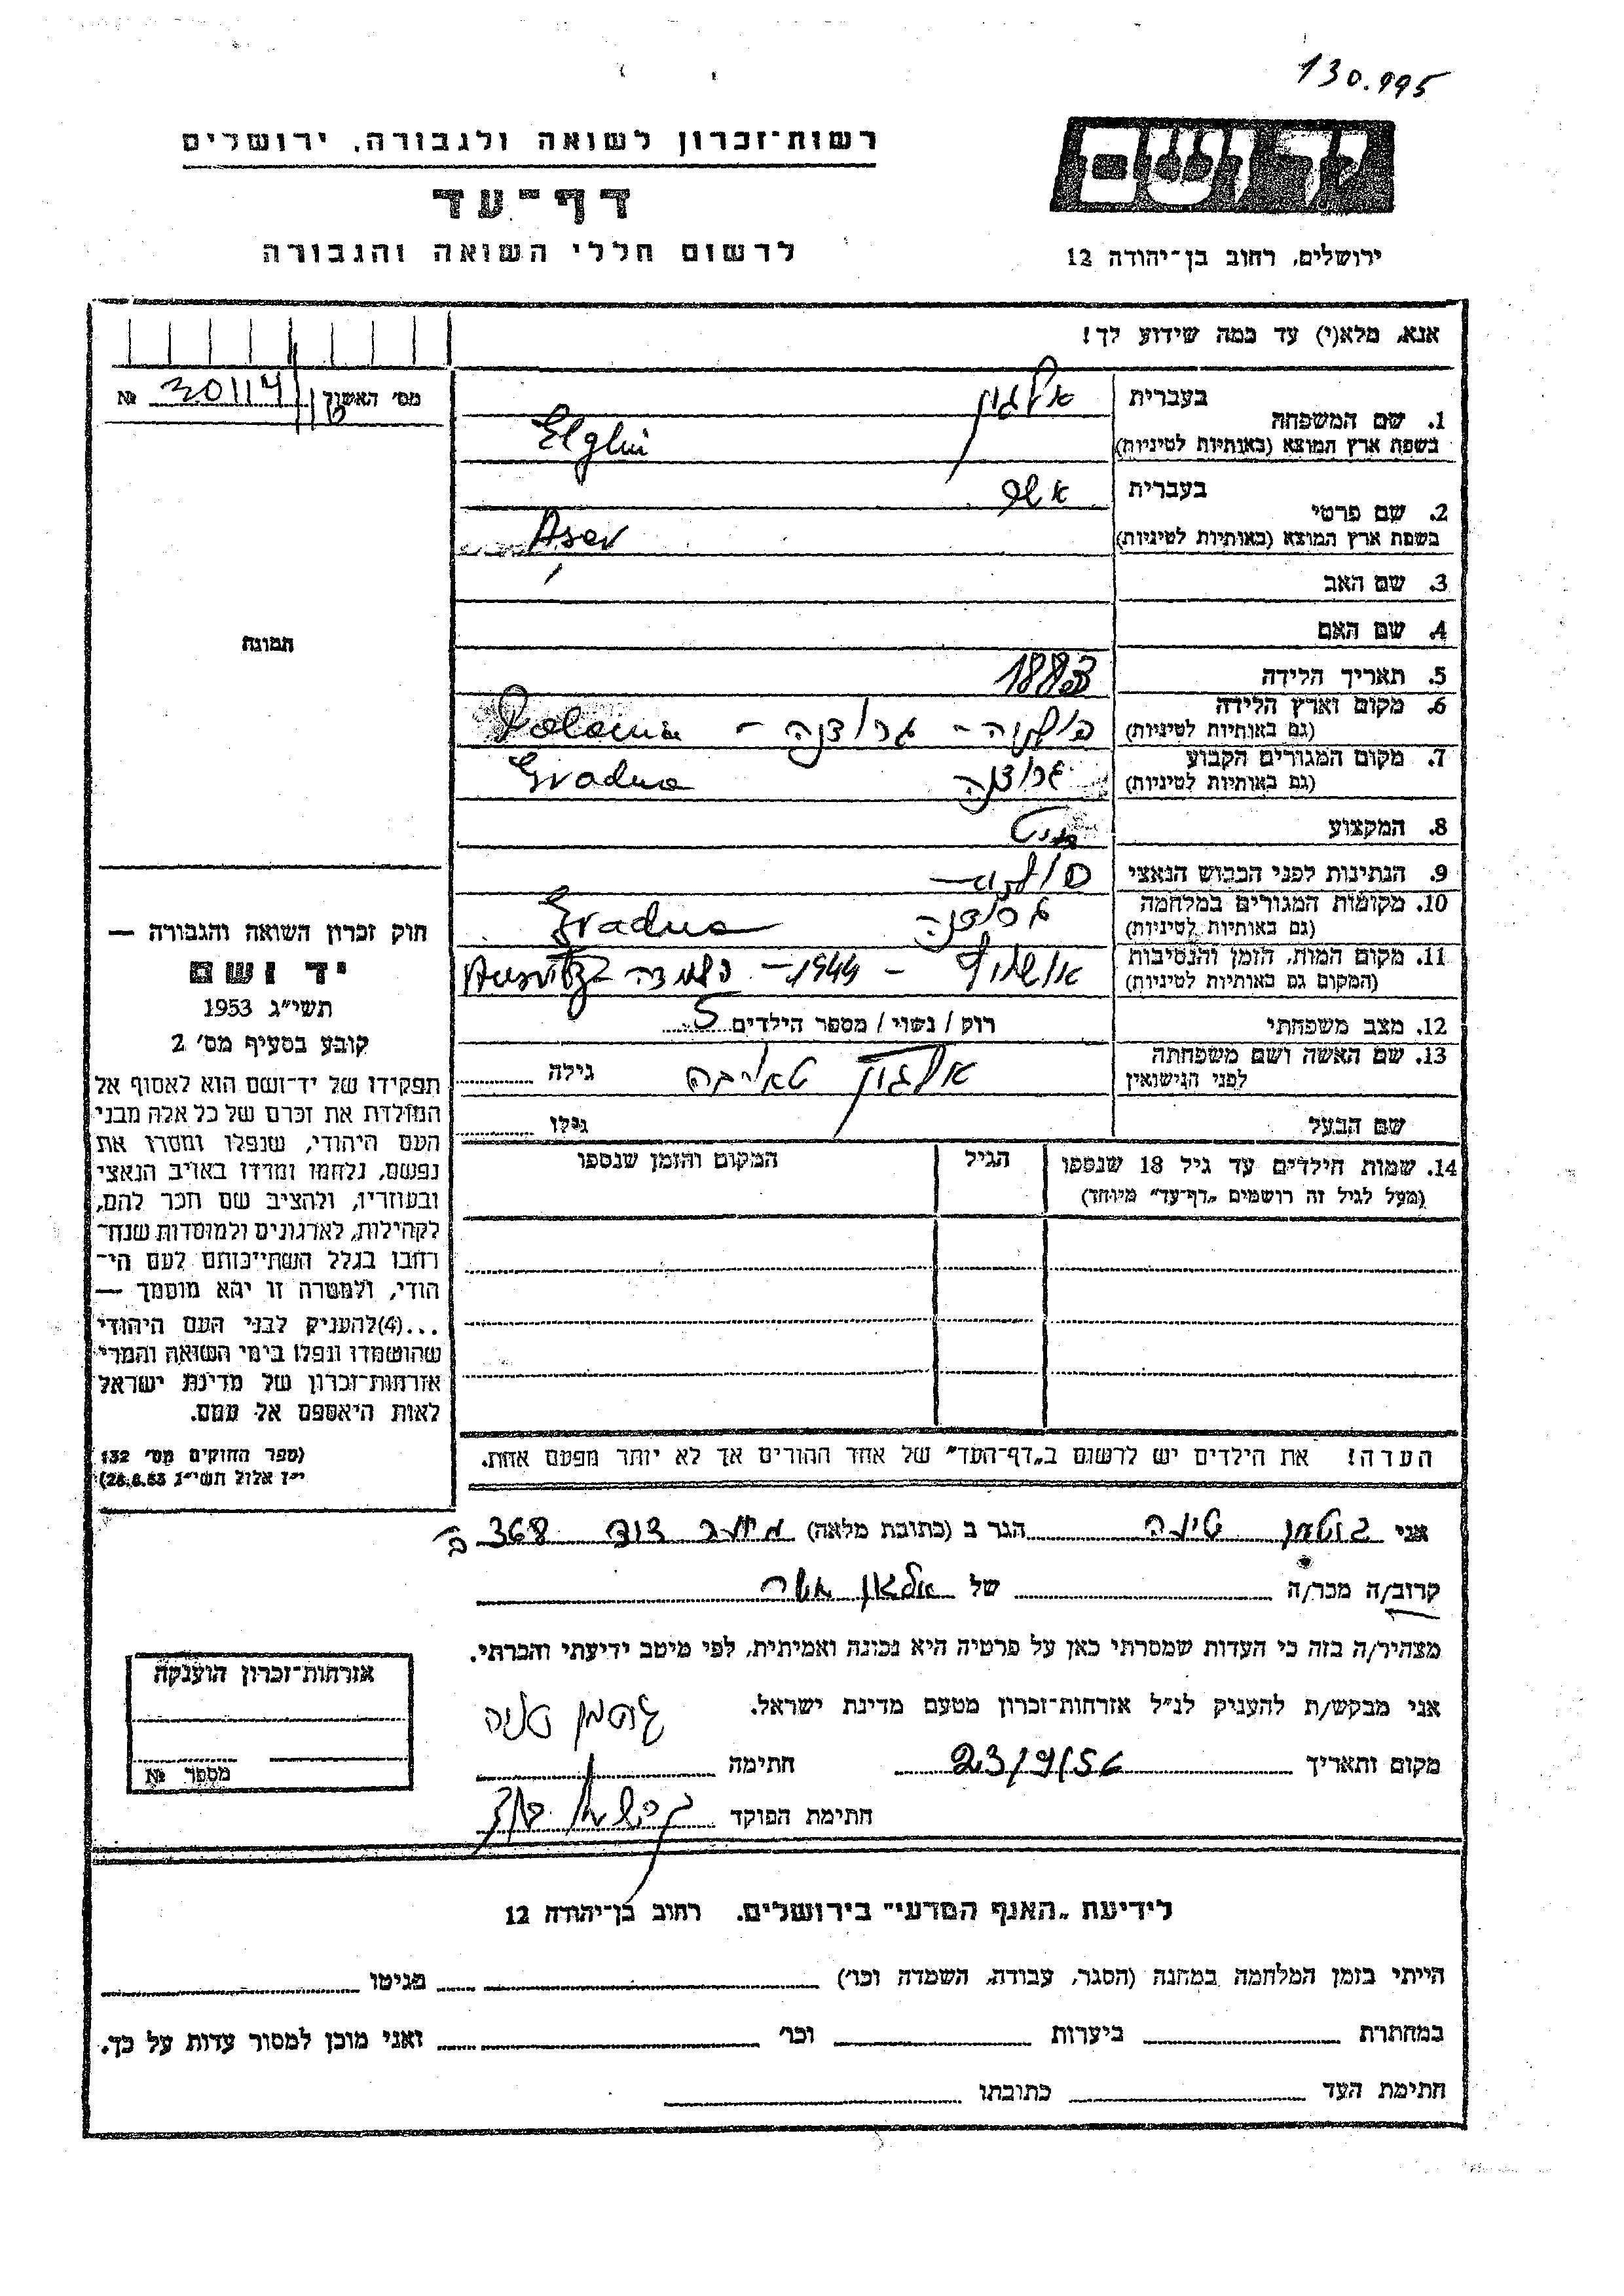 130.995
יד ושם
רשות-זכרון לשואה ולגבורה, ירושלים
דף-עד
לרשום חללי השואה והגבורה
ירושלים, רחוב בן-יהודה 12
אנא, מלא(י) עד כמה שידוע לך!
מס' האשנך 30114 №
1. שם המשפחה
בעברית
בשפת ארץ המוצא (באותיות לטיניות)
2. שם פרטי
בעברית אשר
בשפת ארץ המוצא (באותיות לטיניות) Aser
3. שם האב
4. שם האם
תמונה
5. תאריך הלידה 1883
6. מקום וארץ הלידה
(גם באותיות לטיניות) פולניה - גרודנה - Polania
7. מקום המגורים הקבוע
(גם באותיות לטיניות) גרודנה Gradno
8. המקצוע
9. הנתינות לפני הכבוש הנאצי
10. מקומות המגורים במלחמה
(גם באותיות לטיניות) גרודנה Gradno
11. מקום המות, הזמן והנסיבות
(המקום גם באותיות לטיניות) אושויץ - 1944 -
12. מצב משפחתי רוק / נשוי / מספר הילדים 5
13. שם האשה ושם משפחתה
לפני הנישואין גילה
שם הבעל גילו
14. שמות הילדים עד גיל 18 שנספו
(מעל לגיל זה רושמים „דף-עד" מיוחד)
הגיל
המקום והזמן שנספו
הערה! את הילדים יש לרשום ב„דף-העד" של אחד ההורים אך לא יותר מפעם אחת.
חוק זכרון השואה והגבורה —
יד ושם
תשי"ג 1953
קובע בסעיף מס' 2
תפקידו של יד-ושם הוא לאסוף אל
המולדת את זכרם של כל אלה מבני
העם היהודי, שנפלו ומסרו את
נפשם, נלחמו ומרדו באויב הנאצי
ובעוזריו, ולהציב שם וזכר להם,
לקהילות, לארגונים ולמוסדות שנח-
רחבו בגלל השתייכותם לעם הי-
הודי, ולמטרה זו יהא מוסמך —
...(4)להעניק לבני העם היהודי
שהושמדו ונפלו בימי השואה והמרי
אזרחות-זכרון של מדינת ישראל
לאות היאספם אל עמם.
(ספר החוקים מס' 132
י"ז אלול תשי"ג 28.8.53)
אני גוטמן הגר ב (כתובת מלאה) 368
קרוב/ה מכר/ה של אלגון אשר
מצהיר/ה בזה כי העדות שמסרתי כאן על פרטיה היא נכונה ואמיתית, לפי מיטב ידיעתי והכרתי.
אני מבקש/ת להעניק לנ"ל אזרחות-זכרון מטעם מדינת ישראל.
מקום ותאריך 23/9/56 חתימה גוטמן
חתימת הפוקד
אזרחות-זכרון הוענקה
מספר №
לידיעת „האגף המדעי" בירושלים. רחוב בן-יהודה 12
הייתי בזמן המלחמה במחנה (הסגר, עבודה, השמדה וכו') בגיטו
במחתרת ביערות וכו' ואני מוכן למסור עדות על כך.
חתימת העד כתובתו